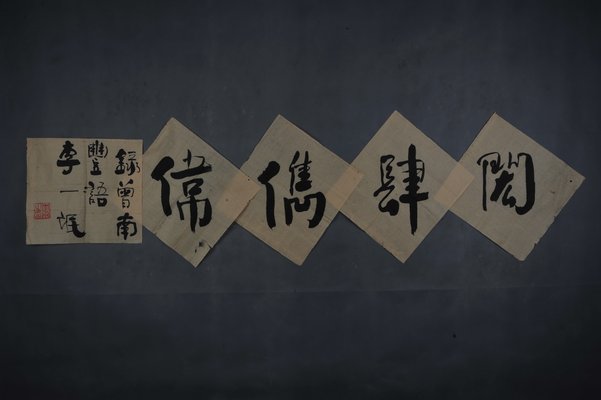 閎肆儁偉
錄曾南
豐語
李一氓